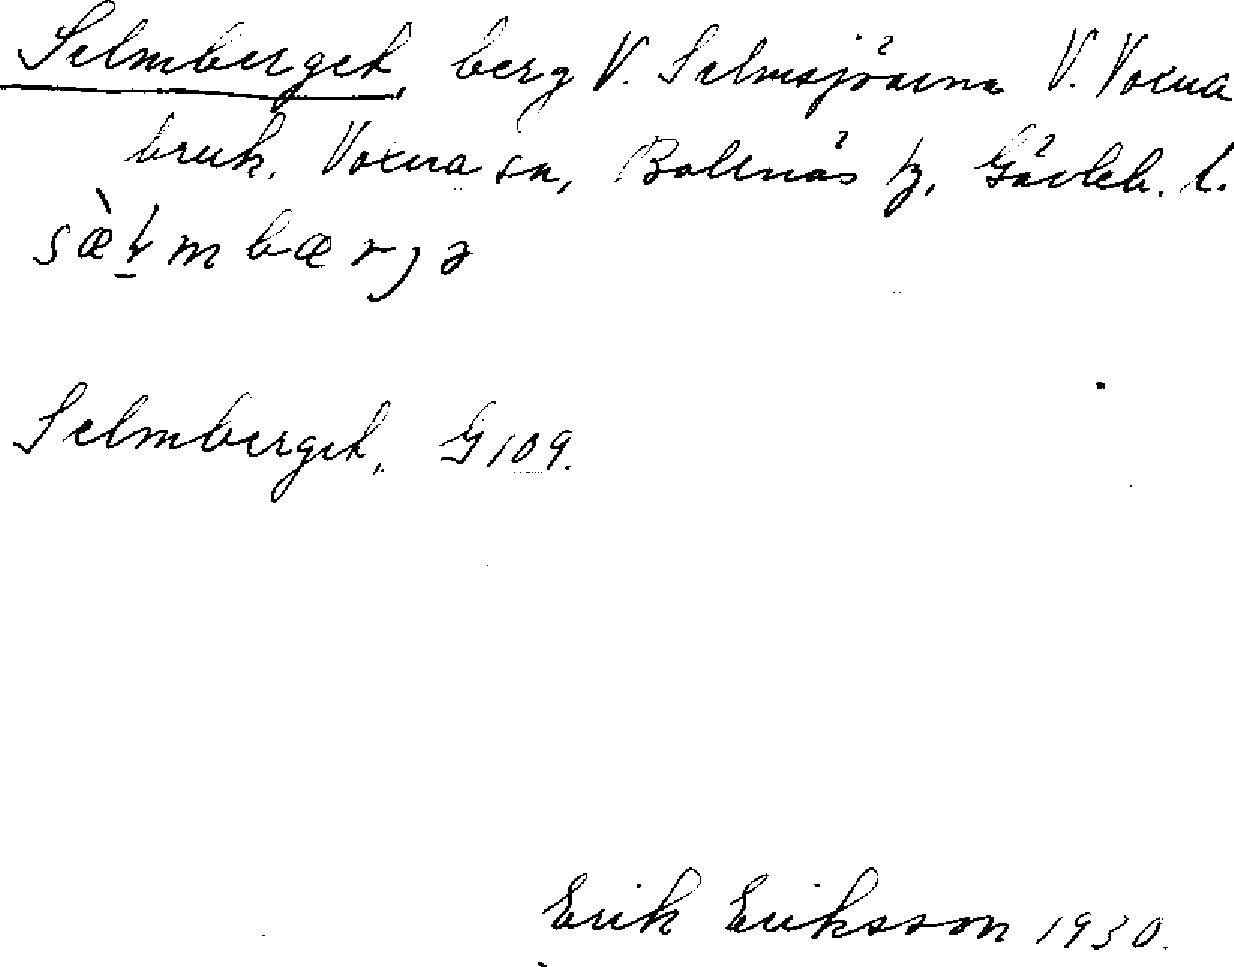 Selmberget, berg V. Selmsjöarna V. Voxna
bruk. Voxna sn, Bollnäs tg, Gävleb. l.
sæ̀ḷmbærjə
Selmberget, G 109.
Erik Eriksson 1930.